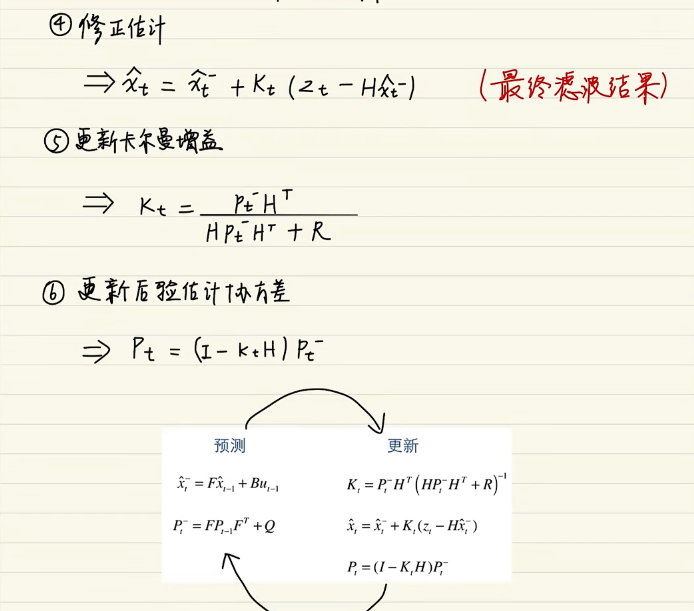 ④ 修正估计
⇒ x̂ₜ = x̂ₜ⁻ + Kₜ (zₜ − Hx̂ₜ⁻) (最终滤波结果)
⑤ 更新卡尔曼增益
⇒ Kₜ = Pₜ⁻Hᵀ / (HPₜ⁻Hᵀ + R)
⑥ 更新后验估计协方差
⇒ Pₜ = (I − KₜH) Pₜ⁻
预测 更新
x̂ₜ⁻ = Fx̂ₜ₋₁ + Buₜ₋₁ Kₜ = Pₜ⁻Hᵀ(HPₜ⁻Hᵀ + R)⁻¹
Pₜ⁻ = FPₜ₋₁Fᵀ + Q x̂ₜ = x̂ₜ⁻ + Kₜ(zₜ − Hx̂ₜ⁻)
Pₜ = (I − KₜH)Pₜ⁻